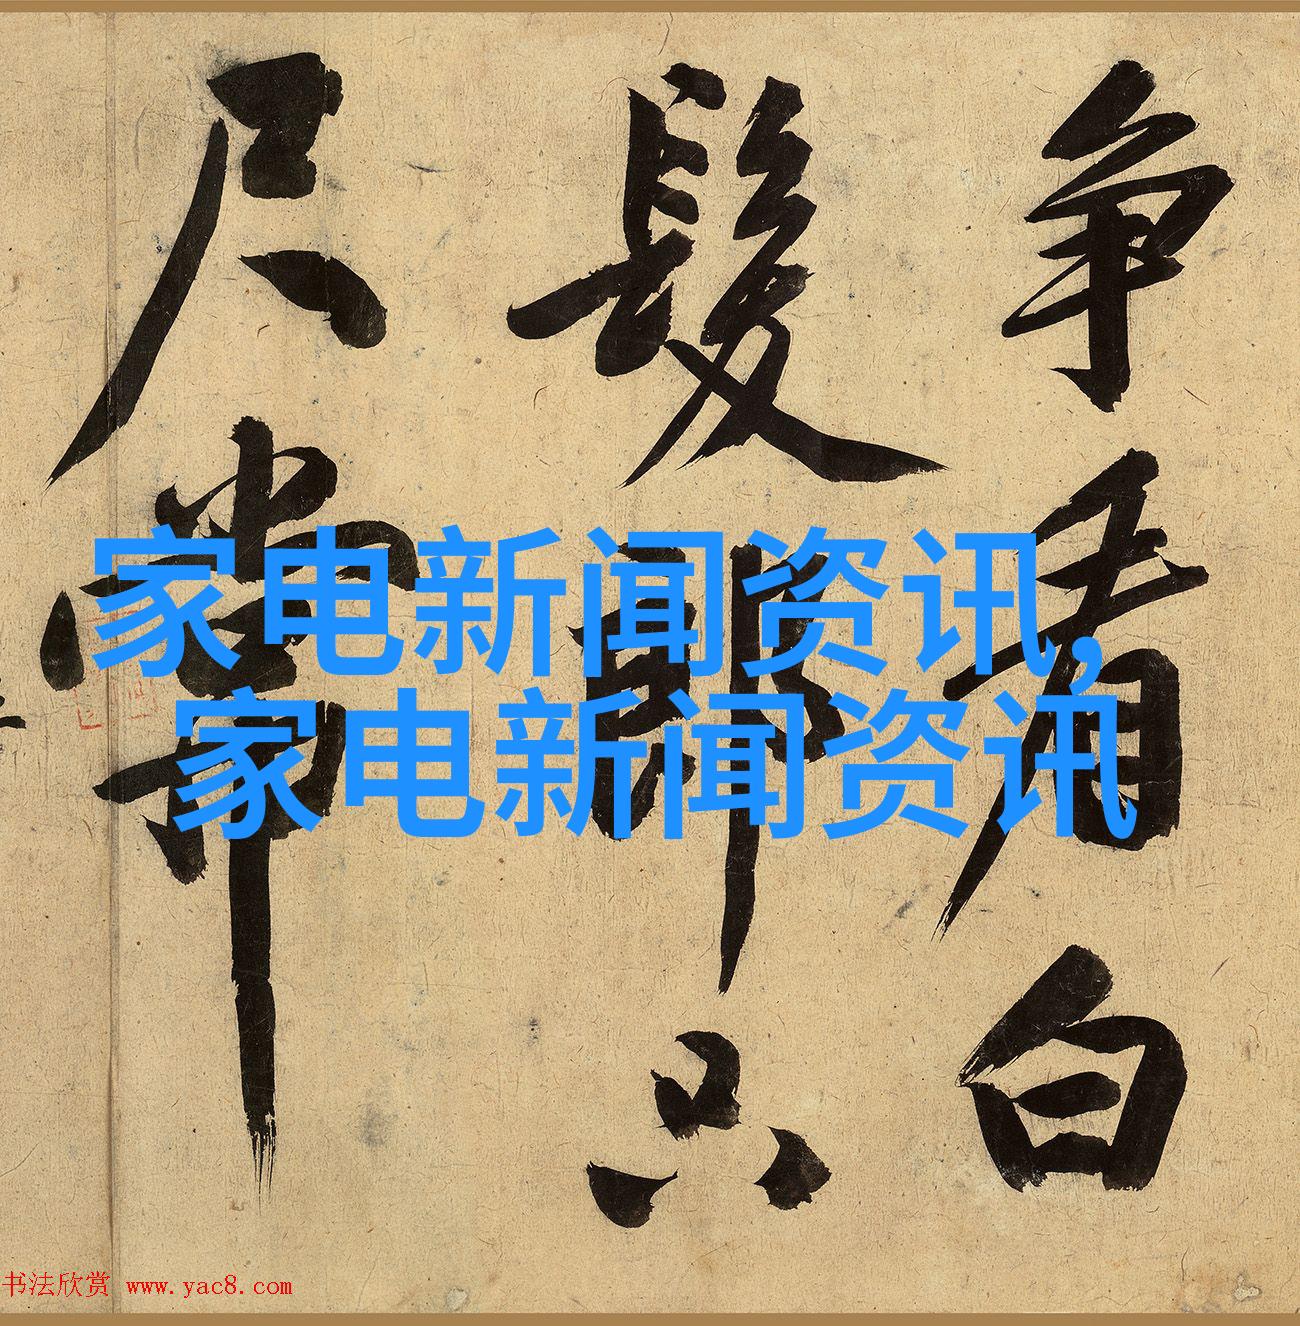 争看白
髮郎只
尺常
家电新闻资讯,
家电新闻资讯
书法欣赏 www.yac8.com